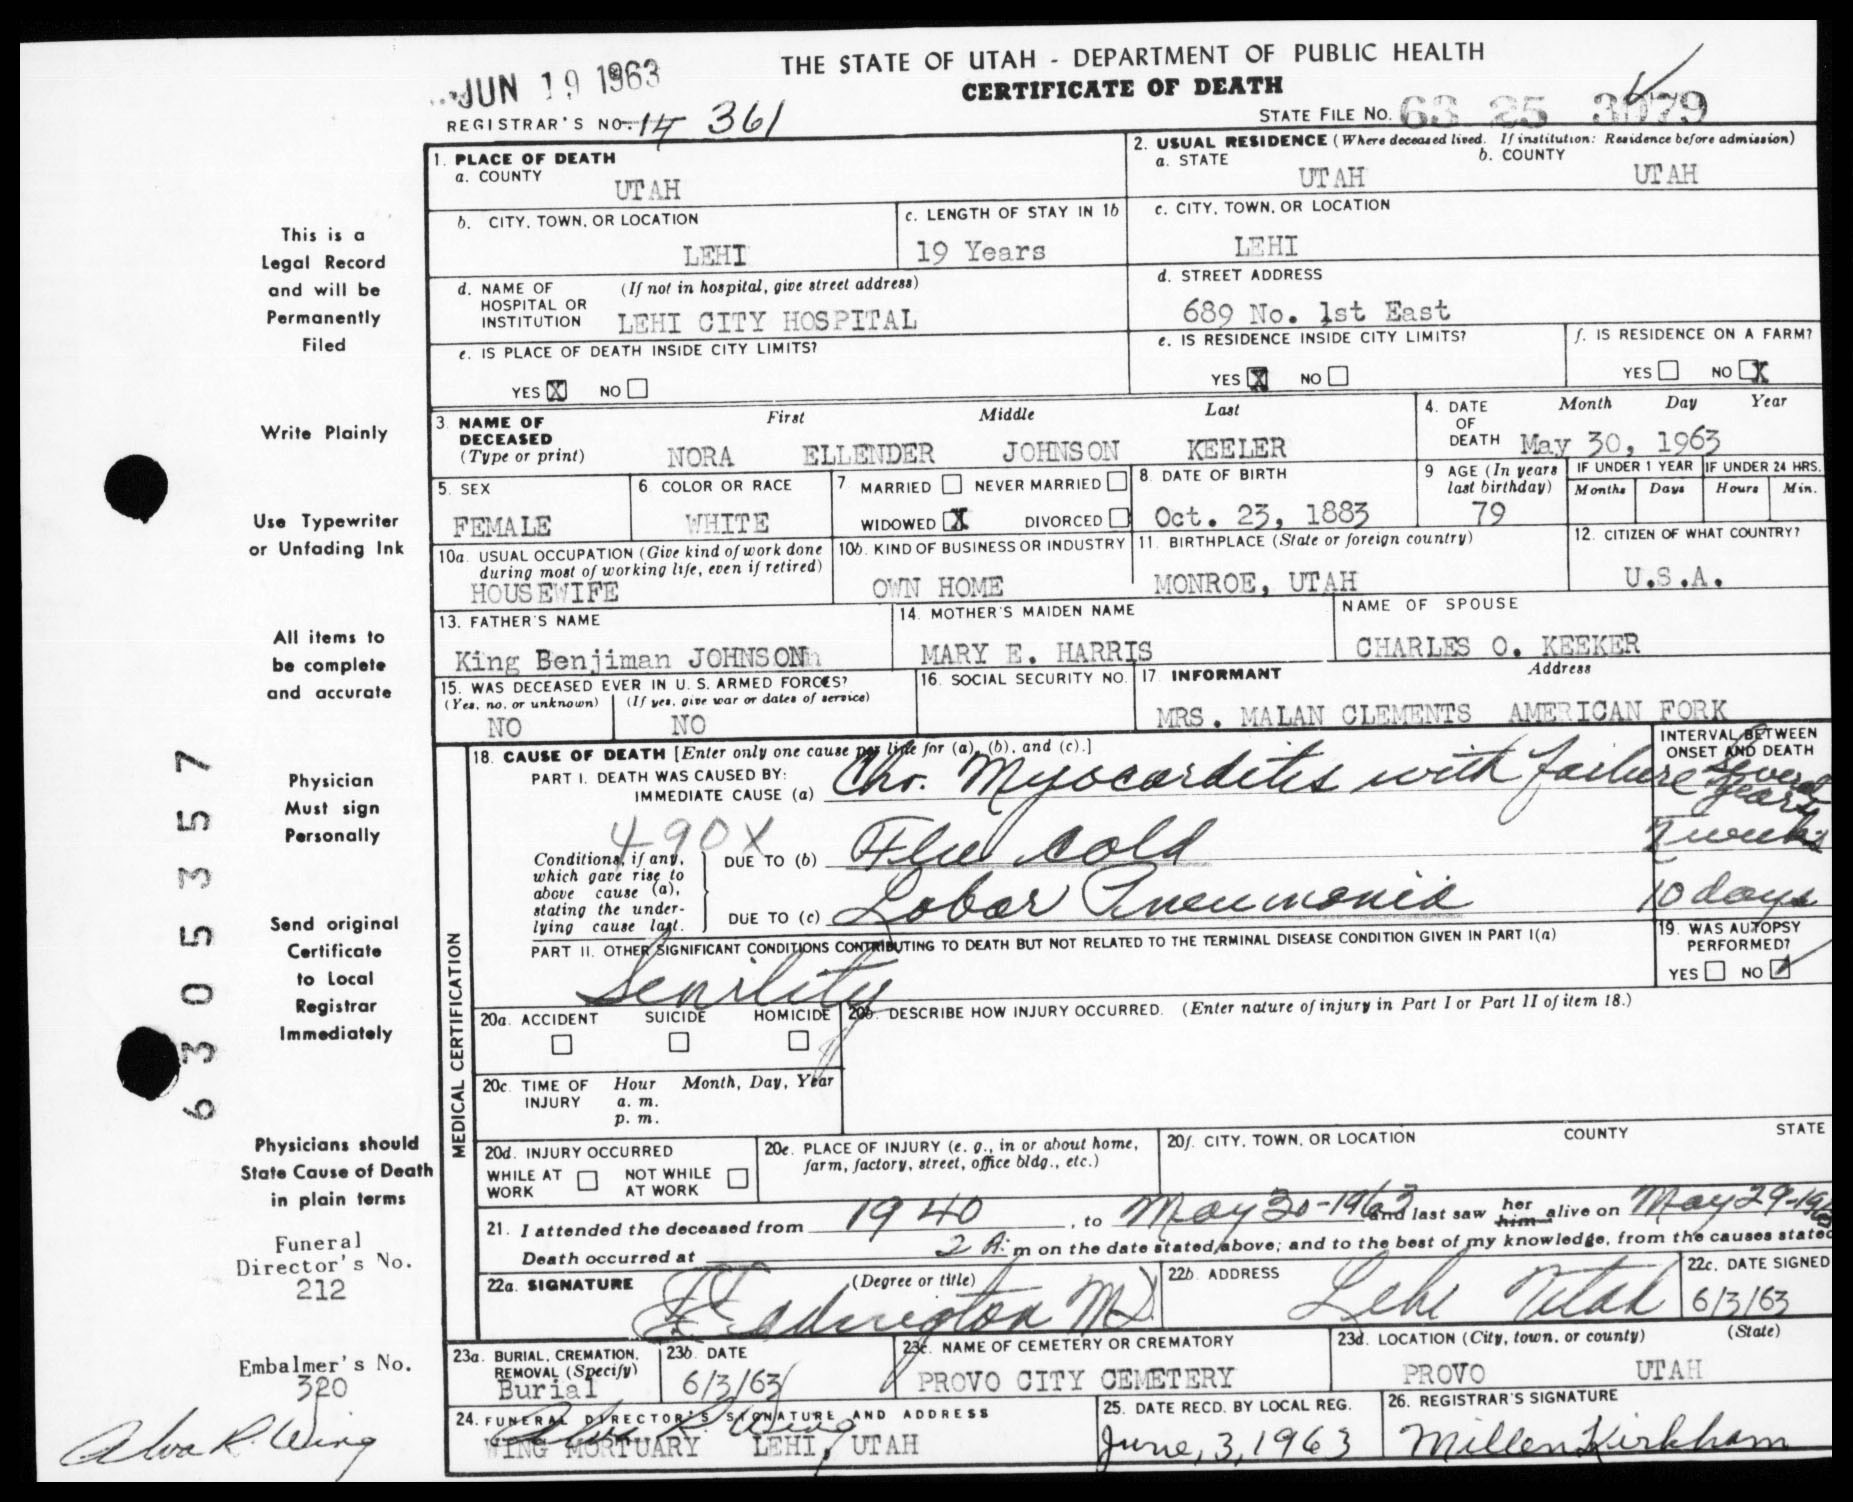 JUN 19 1963
THE STATE OF UTAH - DEPARTMENT OF PUBLIC HEALTH
CERTIFICATE OF DEATH
REGISTRAR'S NO. 14 361
STATE FILE NO. 63 25 3079
1. PLACE OF DEATH
a. COUNTY
UTAH
2. USUAL RESIDENCE (Where deceased lived. If institution: Residence before admission)
a. STATE
UTAH
b. COUNTY
UTAH
b. CITY, TOWN, OR LOCATION
LEHI
c. LENGTH OF STAY IN 1b
19 Years
c. CITY, TOWN, OR LOCATION
LEHI
d. NAME OF HOSPITAL OR INSTITUTION
(If not in hospital, give street address)
LEHI CITY HOSPITAL
d. STREET ADDRESS
689 No. 1st East
e. IS PLACE OF DEATH INSIDE CITY LIMITS?
YES X NO
e. IS RESIDENCE INSIDE CITY LIMITS?
YES X NO
f. IS RESIDENCE ON A FARM?
YES NO X
3. NAME OF DECEASED
(Type or print)
First Middle Last
NORA ELLENDER JOHNSON KEELER
4. DATE OF DEATH
Month Day Year
May 30, 1963
5. SEX
FEMALE
6 COLOR OR RACE
WHITE
7 MARRIED NEVER MARRIED
WIDOWED X DIVORCED
8 DATE OF BIRTH
Oct. 23, 1883
9 AGE (In years last birthday)
79
IF UNDER 1 YEAR
Months Days
IF UNDER 24 HRS.
Hours Min.
10a. USUAL OCCUPATION (Give kind of work done during most of working life, even if retired)
HOUSEWIFE
10b. KIND OF BUSINESS OR INDUSTRY
OWN HOME
11. BIRTHPLACE (State or foreign country)
MONROE, UTAH
12. CITIZEN OF WHAT COUNTRY?
U.S.A.
13. FATHER'S NAME
King Benjiman JOHNSON
14. MOTHER'S MAIDEN NAME
MARY E. HARRIS
NAME OF SPOUSE
CHARLES O. KEEKER
15. WAS DECEASED EVER IN U. S. ARMED FORCES?
(Yes, no, or unknown) (If yes, give war or dates of service)
NO NO
16. SOCIAL SECURITY NO.
17. INFORMANT Address
MRS. MALAN CLEMENTS AMERICAN FORK
MEDICAL CERTIFICATION
18. CAUSE OF DEATH [Enter only one cause per line for (a), (b), and (c).]
PART I. DEATH WAS CAUSED BY:
IMMEDIATE CAUSE (a) Chr. Myocarditis with failure
INTERVAL BETWEEN ONSET AND DEATH
Several years
490X
Conditions, if any, which gave rise to above cause (a), stating the underlying cause last.
DUE TO (b) Flu cold
2 weeks
DUE TO (c) Lobar Pneumonia
10 days
PART II. OTHER SIGNIFICANT CONDITIONS CONTRIBUTING TO DEATH BUT NOT RELATED TO THE TERMINAL DISEASE CONDITION GIVEN IN PART I(a)
Senility
19. WAS AUTOPSY PERFORMED?
YES NO
20a. ACCIDENT SUICIDE HOMICIDE
20b. DESCRIBE HOW INJURY OCCURRED. (Enter nature of injury in Part I or Part II of item 18.)
20c. TIME OF INJURY
Hour Month, Day, Year
a. m.
p. m.
20d. INJURY OCCURRED
WHILE AT WORK NOT WHILE AT WORK
20e. PLACE OF INJURY (e. g., in or about home, farm, factory, street, office bldg., etc.)
20f. CITY, TOWN, OR LOCATION COUNTY STATE
21. I attended the deceased from 1940, to May 30-1963 and last saw her him alive on May 29-1963
Death occurred at 2 A. m on the date stated above; and to the best of my knowledge, from the causes stated
22a. SIGNATURE (Degree or title)
Eddington MD
22b. ADDRESS
Lehi Utah
22c. DATE SIGNED
6/3/63
23a. BURIAL, CREMATION, REMOVAL (Specify)
Burial
23b. DATE
6/3/63
23c. NAME OF CEMETERY OR CREMATORY
PROVO CITY CEMETERY
23d. LOCATION (City, town, or county) (State)
PROVO UTAH
24. FUNERAL DIRECTOR'S SIGNATURE AND ADDRESS
Alva R. Wing
WING MORTUARY LEHI, UTAH
25. DATE RECD. BY LOCAL REG.
June, 3, 1963
26. REGISTRAR'S SIGNATURE
Millen Kirkham
This is a
Legal Record
and will be
Permanently
Filed
Write Plainly
Use Typewriter
or Unfading Ink
All items to
be complete
and accurate
Physician
Must sign
Personally
Send original
Certificate
to Local
Registrar
Immediately
Physicians should
State Cause of Death
in plain terms
Funeral
Director's No.
212
Embalmer's No.
320
Alva R. Wing
6305357